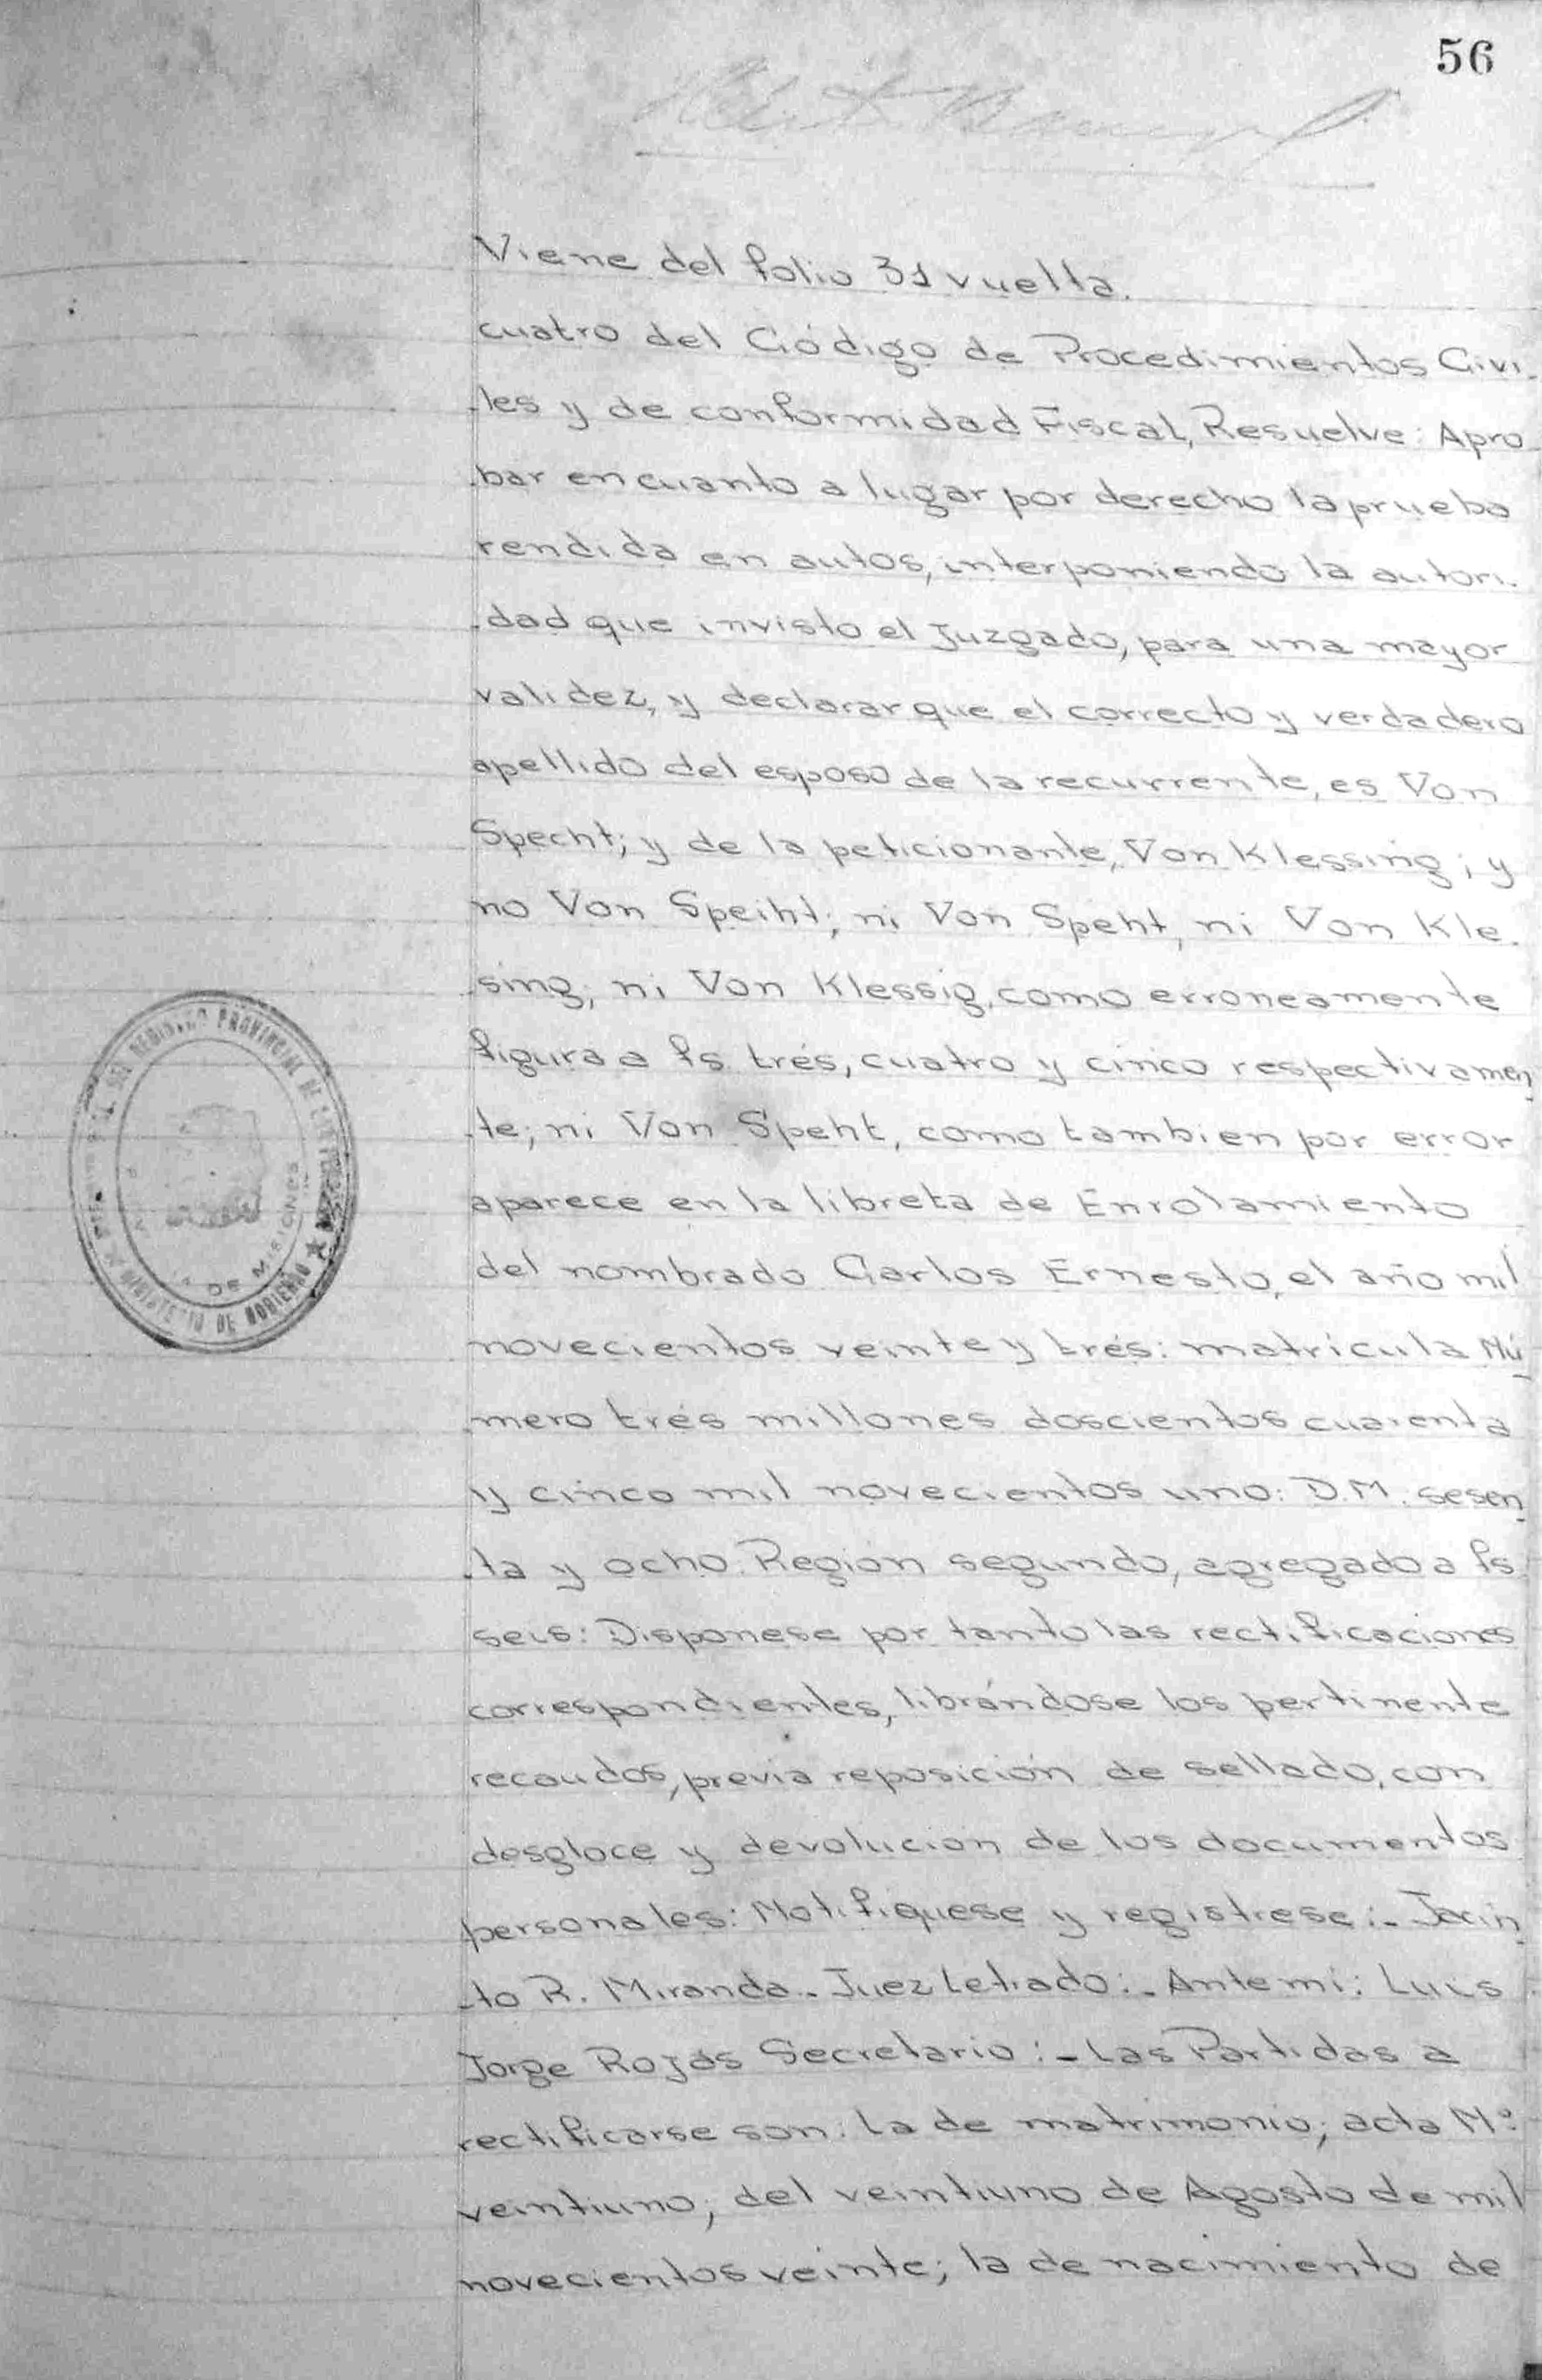 56
Viene del folio 31 vuelta.
cuatro del Código de Procedimientos Civi-
-les y de conformidad Fiscal, Resuelve: Apro-
-bar en cuanto a lugar por derecho la prueba
rendida en autos, interponiendo la autori-
-dad que invisto el Juzgado, para una mayor
validez, y declarar que el correcto y verdadero
apellido del esposo de la recurrente, es Von
Specht; y de la peticionante, Von Klessing; y
no Von Speiht; ni Von Speht, ni Von Kle-
sing; ni Von Klessig, como erroneamente
figura a fs trés, cuatro y cinco respectivamen-
-te; ni Von Speht, como tambien por error
aparece en la libreta de Enrolamiento
del nombrado Carlos Ernesto, el año mil
novecientos veinte y trés: matrícula Nú-
-mero trés millones doscientos cuarenta
y cinco mil novecientos uno: D.M. sesen-
-ta y ocho. Región segundo, agregado a fs
seis: Disponese por tanto las rectificaciones
correspondientes, librándose los pertinente
recaudos, previa reposición de sellado, con
desgloce y devolución de los documentos
personales: Notifiquese y registrese:- Jacin-
-to R. Miranda - Juez Letrado:- Ante mí: Luis
Jorge Rojas Secretario:- Las Partidas a
rectificarse son: La de matrimonio; acta Nº
veintiuno; del veintiuno de Agosto de mil
novecientos veinte; la de nacimiento de
DEL REGISTRO PROVINCIAL DE LAS PERSONAS
MINISTERIO DE GOBIERNO
DE MISIONES